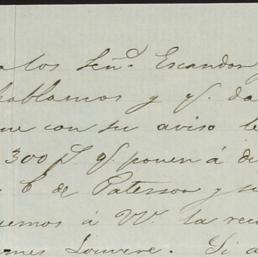 a los Señ.s Escandon
hablamos y q.e da
que con su aviso le
300 p.s q.e ponen á di
C.a de Paterson y s
emos á VV la rec
mes Louvere. Si a